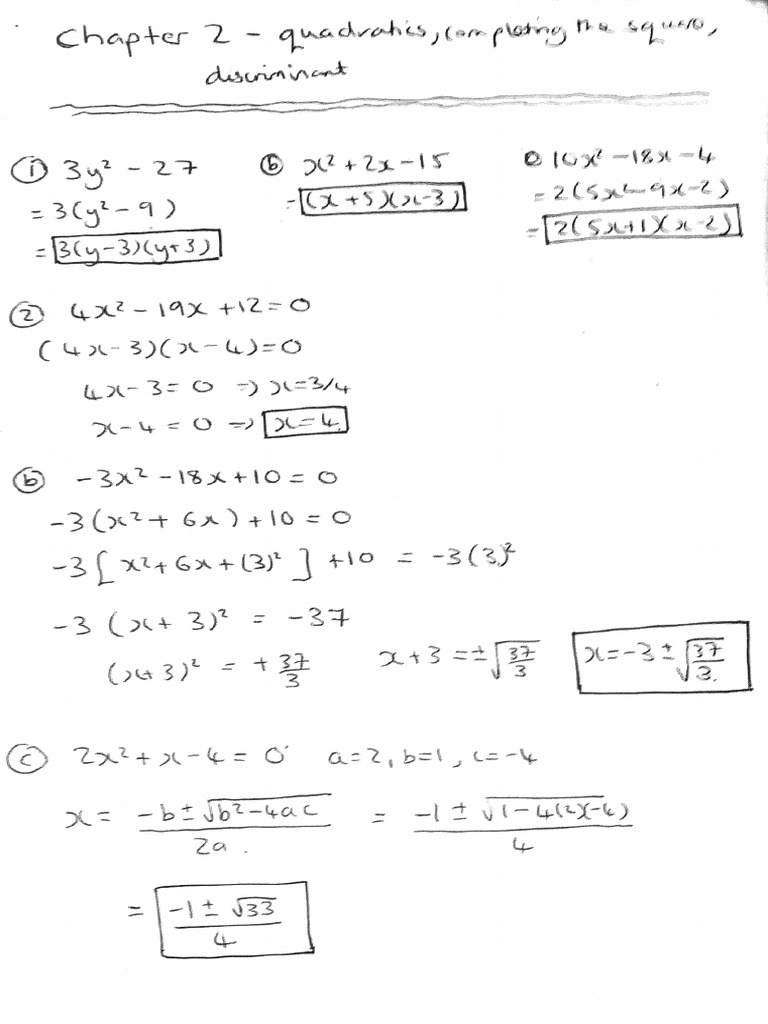 Chapter 2 - quadratics, completing the square,
discriminant
① 3y² - 27
= 3(y² - 9)
= 3(y-3)(y+3)
ⓑ x² + 2x - 15
= (x+5)(x-3)
ⓒ 10x² - 18x - 4
= 2(5x² - 9x - 2)
= 2(5x+1)(x-2)
② 4x² - 19x + 12 = 0
(4x-3)(x-4) = 0
4x - 3 = 0 => x = 3/4
x - 4 = 0 => x = 4
ⓑ -3x² - 18x + 10 = 0
-3(x² + 6x) + 10 = 0
-3[x² + 6x + (3)²] + 10 = -3(3)²
-3(x+3)² = -37
(x+3)² = +37/3 x + 3 = ±√(37/3) x = -3 ± √(37/3)
ⓒ 2x² + x - 4 = 0 a=2, b=1, c=-4
x = (-b ± √(b² - 4ac))/2a = (-1 ± √(1 - 4(2)(-4)))/4
= (-1 ± √33)/4